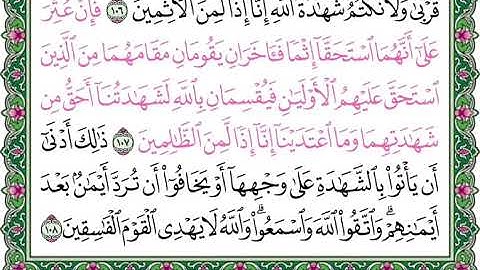 قُرْبَىٰ وَلَا نَكْتُمُ شَهَٰدَةَ ٱللَّهِ إِنَّآ إِذًا لَّمِنَ ٱلْءَاثِمِينَ ١٠٦ فَإِنْ عُثِرَ
عَلَىٰٓ أَنَّهُمَا ٱسْتَحَقَّآ إِثْمًا فَـَٔاخَرَانِ يَقُومَانِ مَقَامَهُمَا مِنَ ٱلَّذِينَ
ٱسْتَحَقَّ عَلَيْهِمُ ٱلْأَوْلَيَٰنِ فَيُقْسِمَانِ بِٱللَّهِ لَشَهَٰدَتُنَآ أَحَقُّ مِن
شَهَٰدَتِهِمَا وَمَا ٱعْتَدَيْنَآ إِنَّآ إِذًا لَّمِنَ ٱلظَّٰلِمِينَ ١٠٧ ذَٰلِكَ أَدْنَىٰٓ
أَن يَأْتُوا۟ بِٱلشَّهَٰدَةِ عَلَىٰ وَجْهِهَآ أَوْ يَخَافُوٓا۟ أَن تُرَدَّ أَيْمَٰنٌۢ بَعْدَ
أَيْمَٰنِهِمْ ۗ وَٱتَّقُوا۟ ٱللَّهَ وَٱسْمَعُوا۟ ۗ وَٱللَّهُ لَا يَهْدِى ٱلْقَوْمَ ٱلْفَٰسِقِينَ ١٠٨